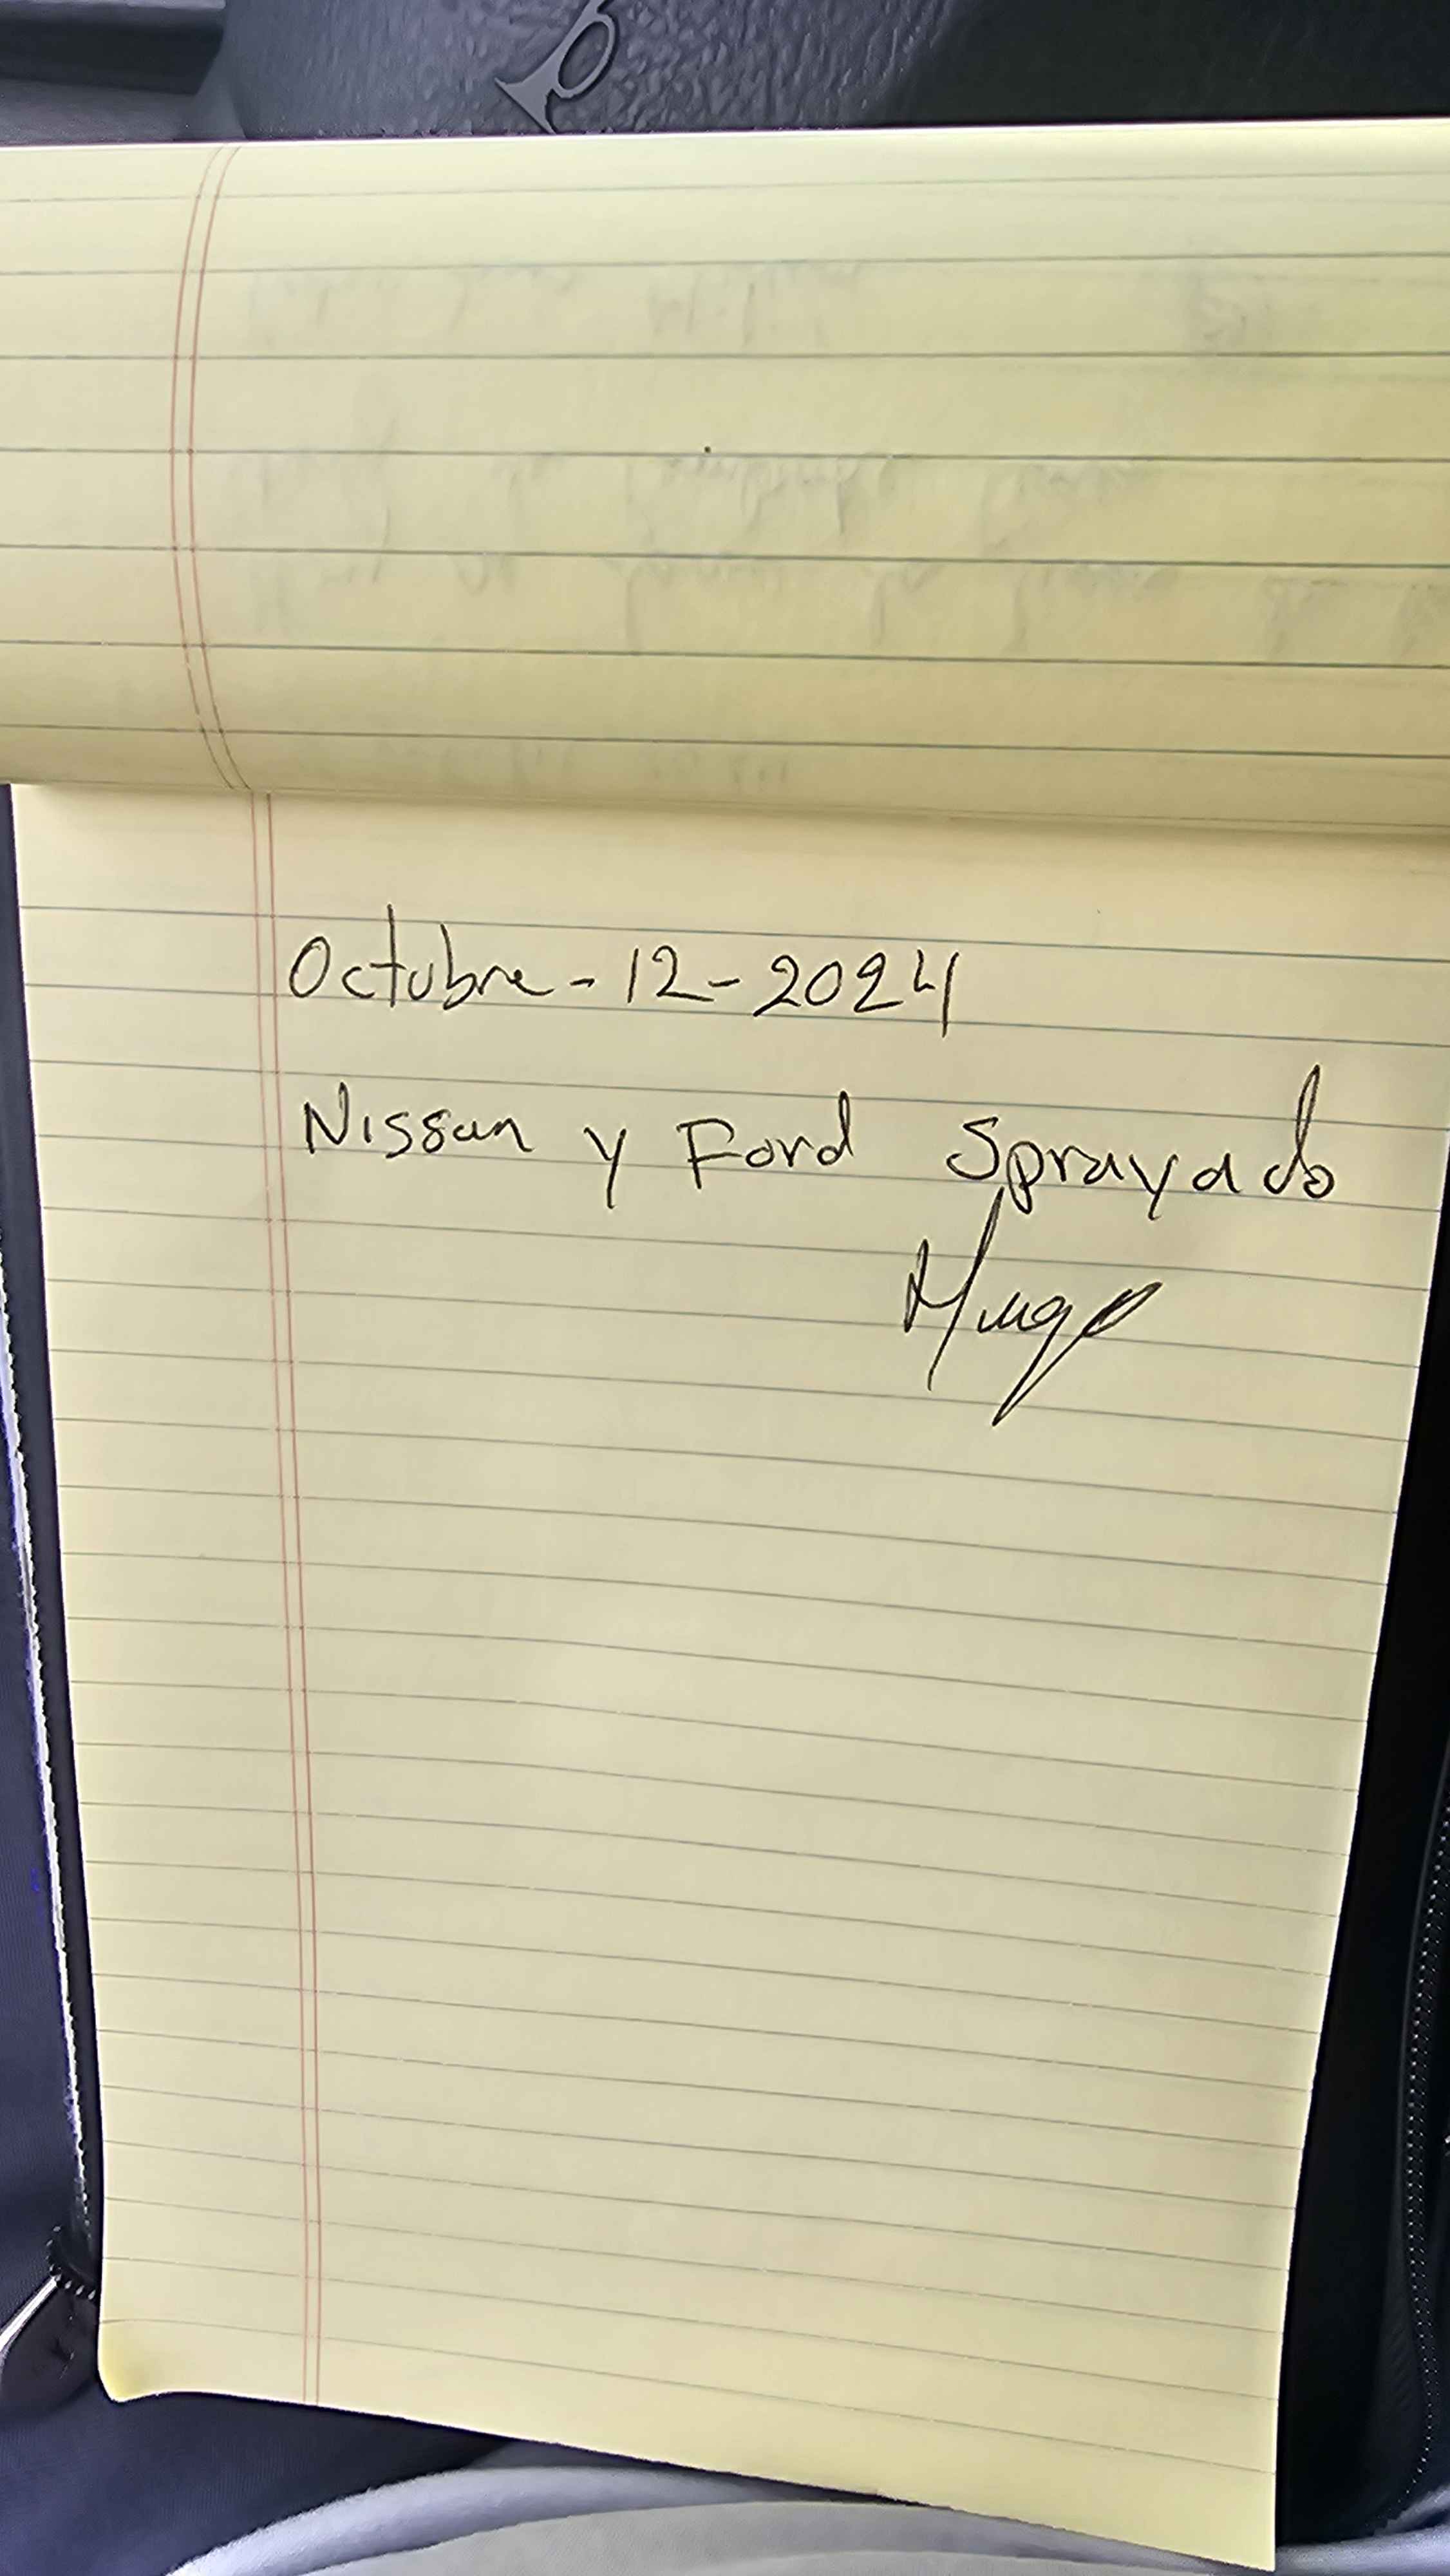 Octubre-12-2024
Nissan y Ford Sprayado
Hugo